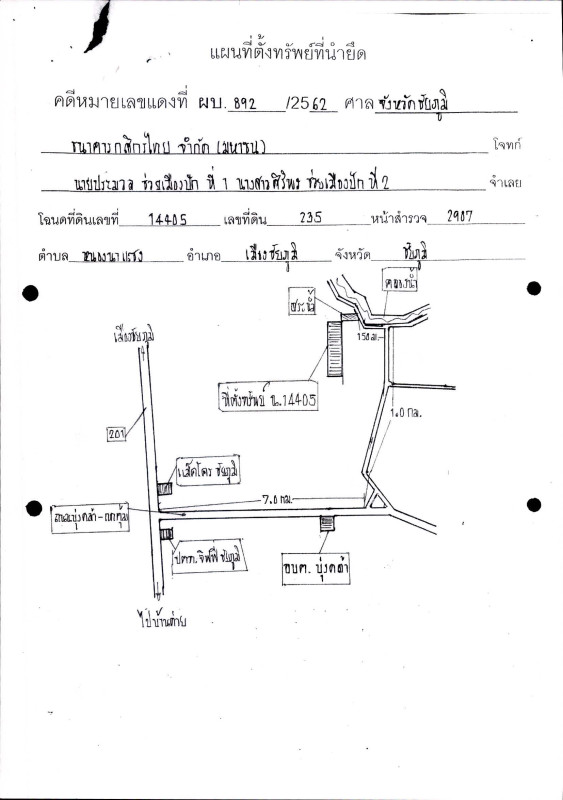 แผนที่ตั้งทรัพย์ที่นำยึด
คดีหมายเลขแดงที่ ผบ. 892 /2562 ศาล จังหวัดชัยภูมิ
ธนาคารกสิกรไทย จำกัด (มหาชน) โจทก์
นายประมวล ช่วยเมืองปัก ที่ 1 นางสาวศิริพร ช่วยเมืองปัก ที่ 2 จำเลย
โฉนดที่ดินเลขที่ 14405 เลขที่ดิน 235 หน้าสำรวจ 2907
ตำบล หนองนาแซง อำเภอ เมืองชัยภูมิ จังหวัด ชัยภูมิ
คลองน้ำ
ประปา
เมืองชัยภูมิ
150 ม.
ที่ตั้งทรัพย์ ฉ.14405
1.0 กม.
201
แม็คโคร ชัยภูมิ
7.0 กม.
ถนนบุ่งคล้า-
ปตท. จิฟฟี่ ชัยภูมิ
อบต. บุ่งคล้า
ไปบ้านค่าย